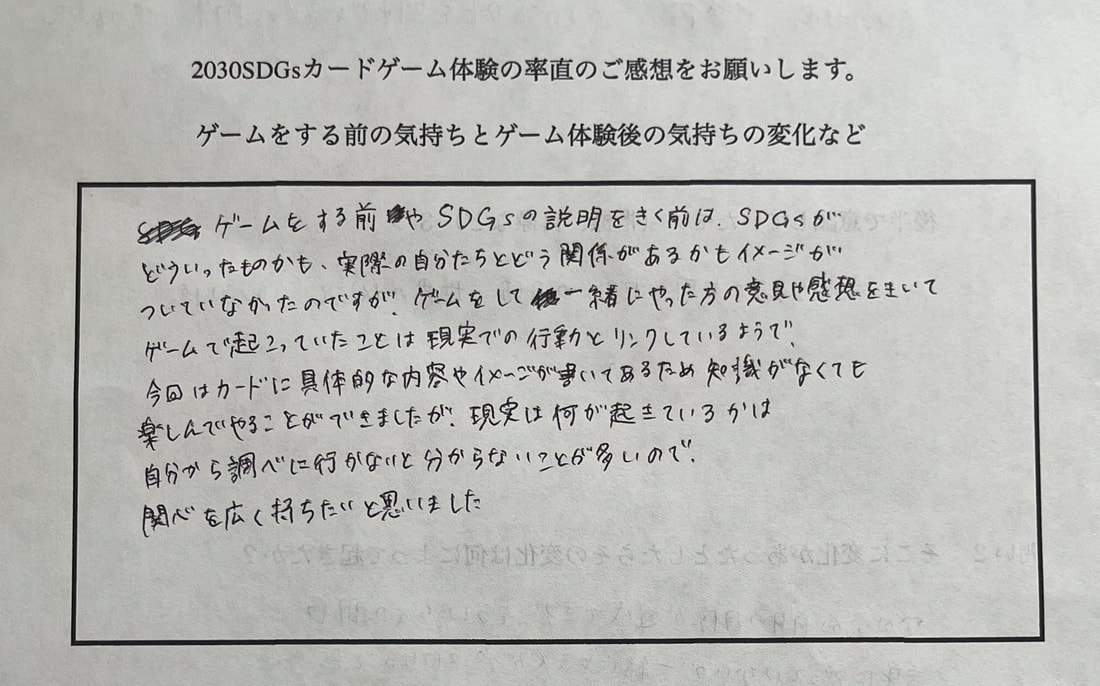 2030SDGsカードゲーム体験の率直のご感想をお願いします。
ゲームをする前の気持ちとゲーム体験後の気持ちの変化など
ゲームをする前やSDGsの説明をきく前は、SDGsが
どういったものかも、実際の自分たちとどう関係があるかもイメージが
ついていなかったのですが、ゲームをして一緒にやった方の意見や感想をきいて
ゲームで起こっていたことは現実での行動とリンクしているようで、
今回はカードに具体的な内容やイメージが書いてあるため知識がなくても
楽しんでやることができましたが、現実は何が起きているかは
自分から調べに行かないと分からないことが多いので、
関心を広く持ちたいと思いました
そこに変化があったとしたらその変化は何によって起きたか?